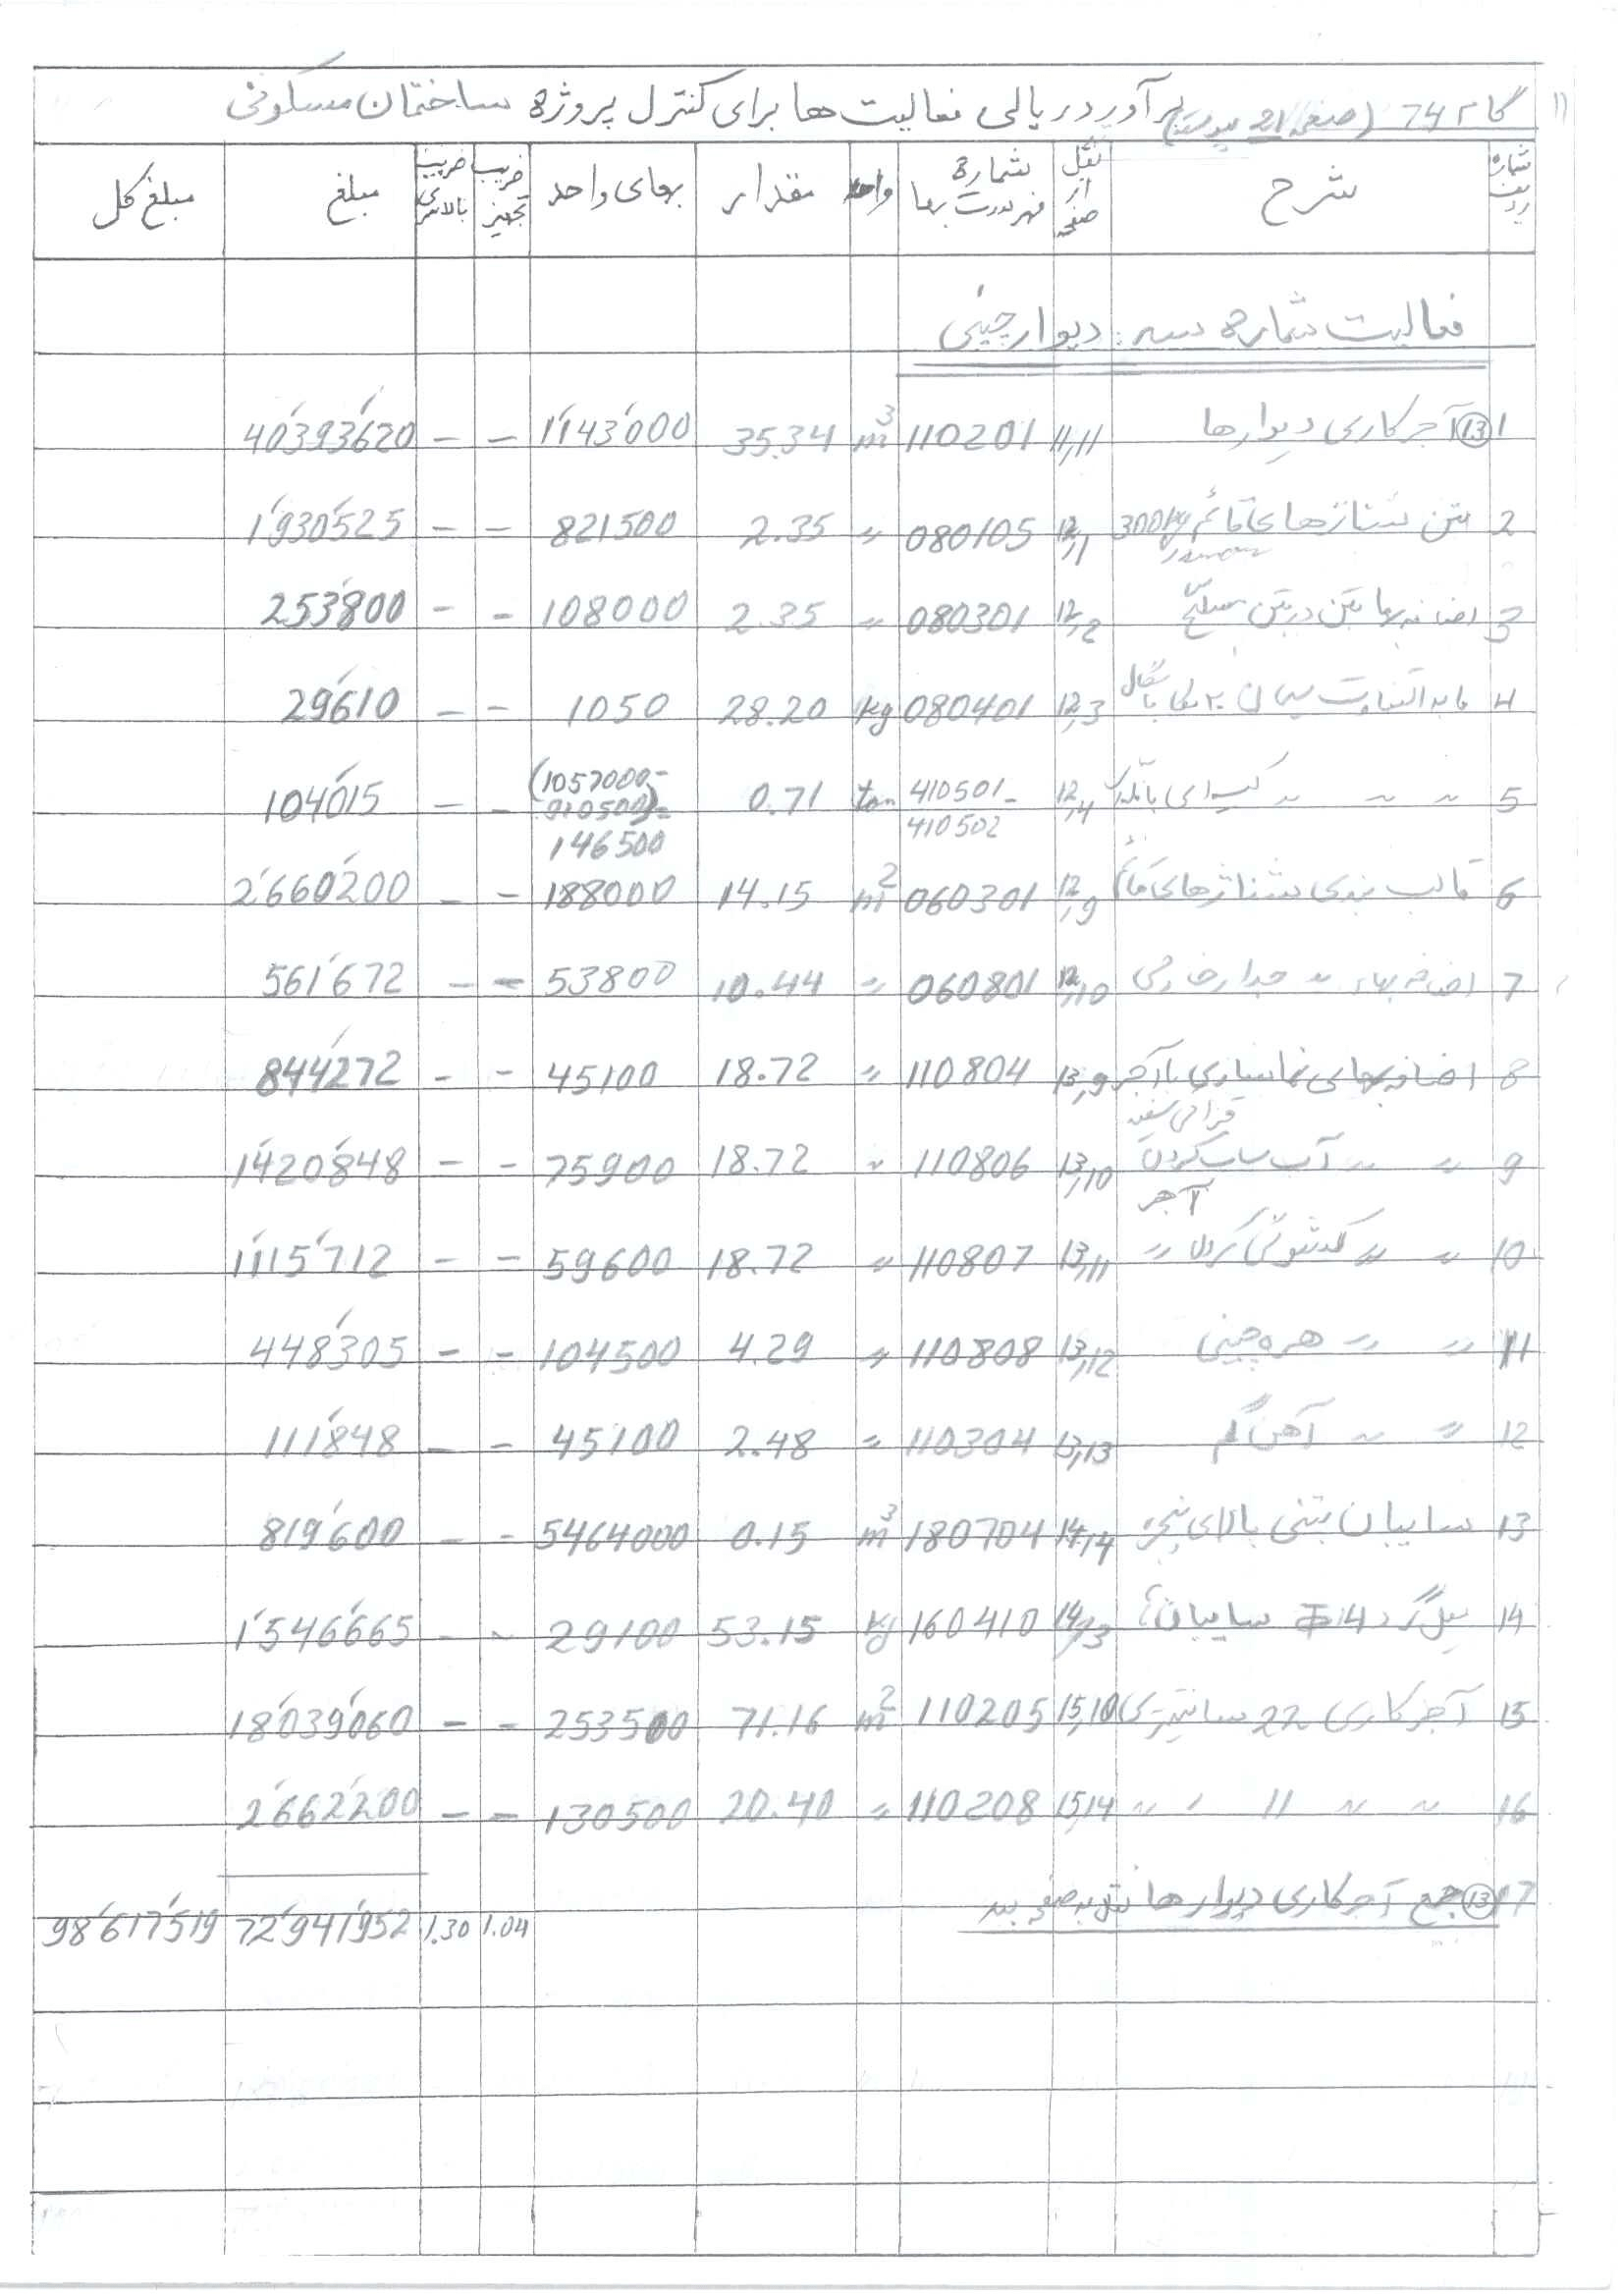 11
گام 74 (صفحه 21 پیوست) برآورد ریالی فعالیت ها برای کنترل پروژه ساختمان مسکونی
شماره ردیف | شرح | نقل از صفحه | شماره فهرست بها | واحد | مقدار | بهای واحد | ضریب تجهیز | ضریب بالاسری | مبلغ | مبلغ کل
فعالیت شماره سه: دیوار چینی
1 (13) آجر کاری دیوارها 11,11 110201 m3 35.34 1'143'000 - - 40'393'620
2 بتن شناژهای قائم 300 kg سیمان 12,1 080105 " 2.35 821500 - - 1'930'525
3 اضافه بها بتن در بتن مسلح 12,2 080301 " 2.35 108000 - - 253'800
4 مابه التفاوت سیمان 12,3 080401 kg 28.20 1050 - - 29'610
5 " " " کیسه ای با 12,4 410501- 410502 ton 0.71 (1057000- 910500)= 146500 - - 104'015
6 قالب بندی شناژهای قائم 12,9 060301 m2 14.15 188000 - - 2'660'200
7 اضافه بهاء " جدار خارجی 12,10 060801 " 10.44 53800 - - 561'672
8 اضافه بهای نماسازی با آجر قزاقی سفید 13,9 110804 " 18.72 45100 - - 844'272
9 " " " آب ساب کردن آجر 13,10 110806 " 18.72 75900 - - 1'420'848
10 " " " کردن " 13,11 110807 " 18.72 59600 - - 1'115'712
11 " " " هره چینی 13,12 110808 " 4.29 104500 - - 448'305
12 " " آهن گم 13,13 110304 " 2.48 45100 - - 111'848
13 سایبان بتنی بالای پنجره 14,14 180704 m3 0.15 5464000 - - 819'600
14 میل گرد Φ14 سایبان 14,13 160410 kg 53.15 29100 - - 1'546'665
15 آجر کاری 22 سانتیمتری 15,10 110205 m2 71.16 253500 - - 18'039'060
16 " " 11 " " 15,14 110208 " 20.40 130500 - - 2'662'200
17 (13) جمع آجر کاری دیوارها نقل به صفحه بعد 1.04 1.30 72'941'952 98'617'519